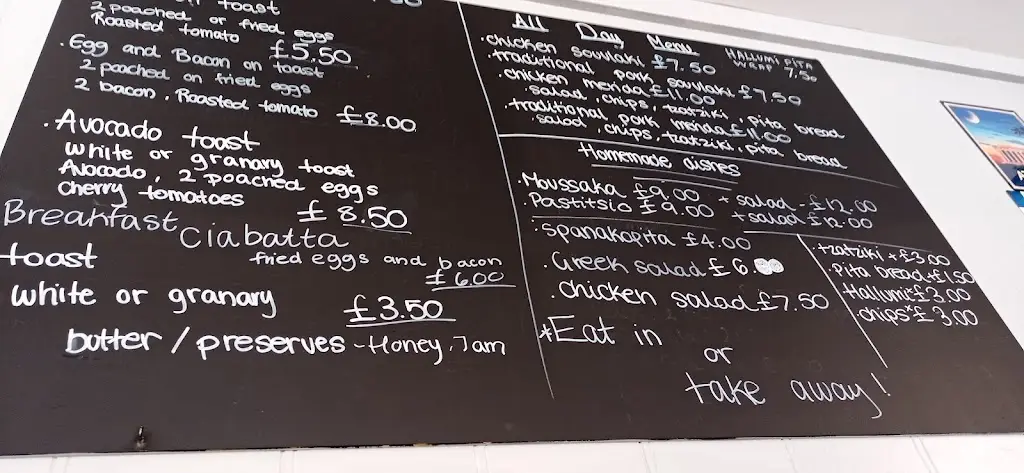 toast
2 poached or fried eggs
Roasted tomato £5.50
. Egg and Bacon on toast
2 poached on fried eggs
2 bacon, Roasted tomato £8.00
. Avocado toast
white or granary toast
Avocado, 2 poached eggs
cherry tomatoes £8.50
Breakfast Ciabatta
fried eggs and bacon
£6.00
toast
white or granary £3.50
butter / preserves - Honey, Jam
All Day Menu
. chicken souvlaki £7.50
HALLUMI PITA
WRAP 7,50
. traditional pork souvlaki £7.50
. chicken merida £11.00
. salad, chips, tzatziki, pita bread
. traditional pork merida £11.00
salad, chips, tzatziki, pita bread
Homemade dishes
. Moussaka £9.00 + salad - £12.00
. Pastitsio £9.00 + salad £12.00
. Spanakopita £4.00
. Greek salad £6.00
. Chicken salad £7.50
. tzatziki + £3.00
. pita bread + £1.50
. Hallumi £3.00
. chips £3.00
*Eat in
or
take away!